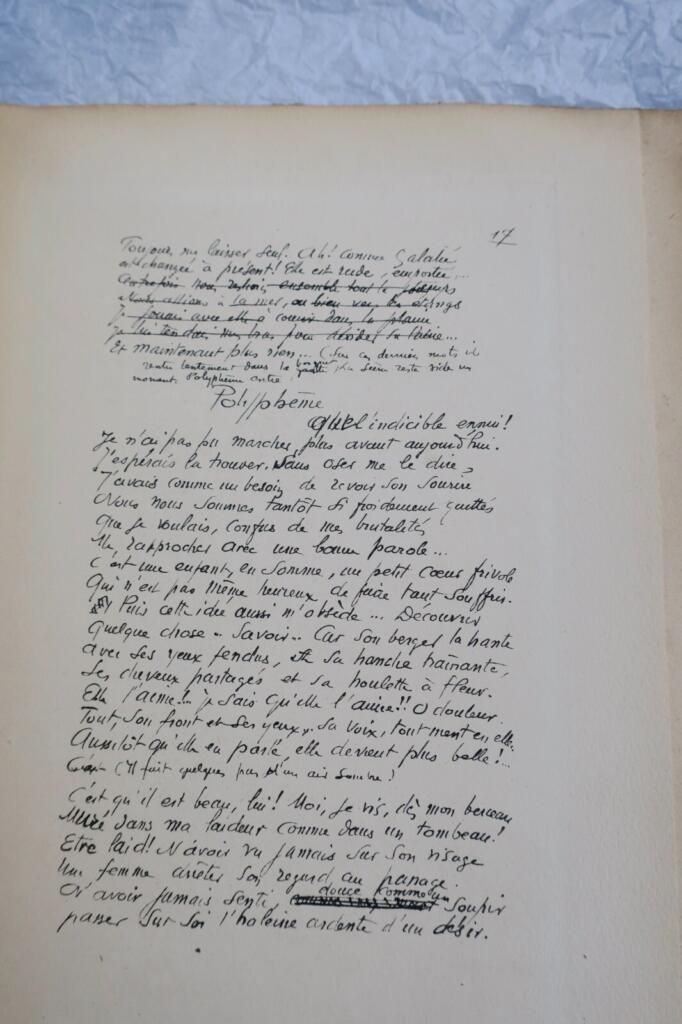 17
Toujours me laisser seul. Ah! comme Galatée
est changée à présent! Elle est rude, emportée...
Autrefois nous restions ensemble tout le jour
Nous allions à la mer, ou bien vers les étangs
Je jouais avec elle à courir dans la plaine
Je lui tendais mes bras pour
Et maintenant plus rien... (Sur ces derniers mots il
rentre lentement dans la grotte; la scène reste vide un
moment. Polyphème entre)
Polyphème
Quel indicible ennui!
Je n'ai pas pu marcher plus avant aujourd'hui.
J'espérais la trouver. Sans oser me le dire,
J'avais comme un besoin de revoir son sourire
Nous nous sommes tantôt si froidement quittés
Que je voulais, confus de mes brutalités
Me rapprocher avec une bonne parole...
C'est une enfant, en somme, un petit cœur frivole
Qui n'est pas même heureux de faire tant souffrir.
Puis cette idée aussi m'obsède... Découvrir
Quelque chose.. Savoir.. Car son berger la hante
avec ses yeux fendus, sa hanche traînante,
Ses cheveux partagés et sa houlette à fleur.
Elle l'aime!.. je sais qu'elle l'aime!! O douleur.
Tout, son front et ses yeux, sa voix, tout ment en elle.
Aussitôt qu'elle en parle, elle devient plus belle!...
(Il fait quelques pas d'un air sombre)
C'est qu'il est beau, lui! Moi, je vis, dès mon berceau
Muré dans ma laideur comme dans un tombeau!
Etre laid! N'avoir vu jamais sur son visage
Une femme arrêter son regard au passage.
N'avoir jamais senti, douce comme un soupir
passer sur soi l'haleine ardente d'un désir.